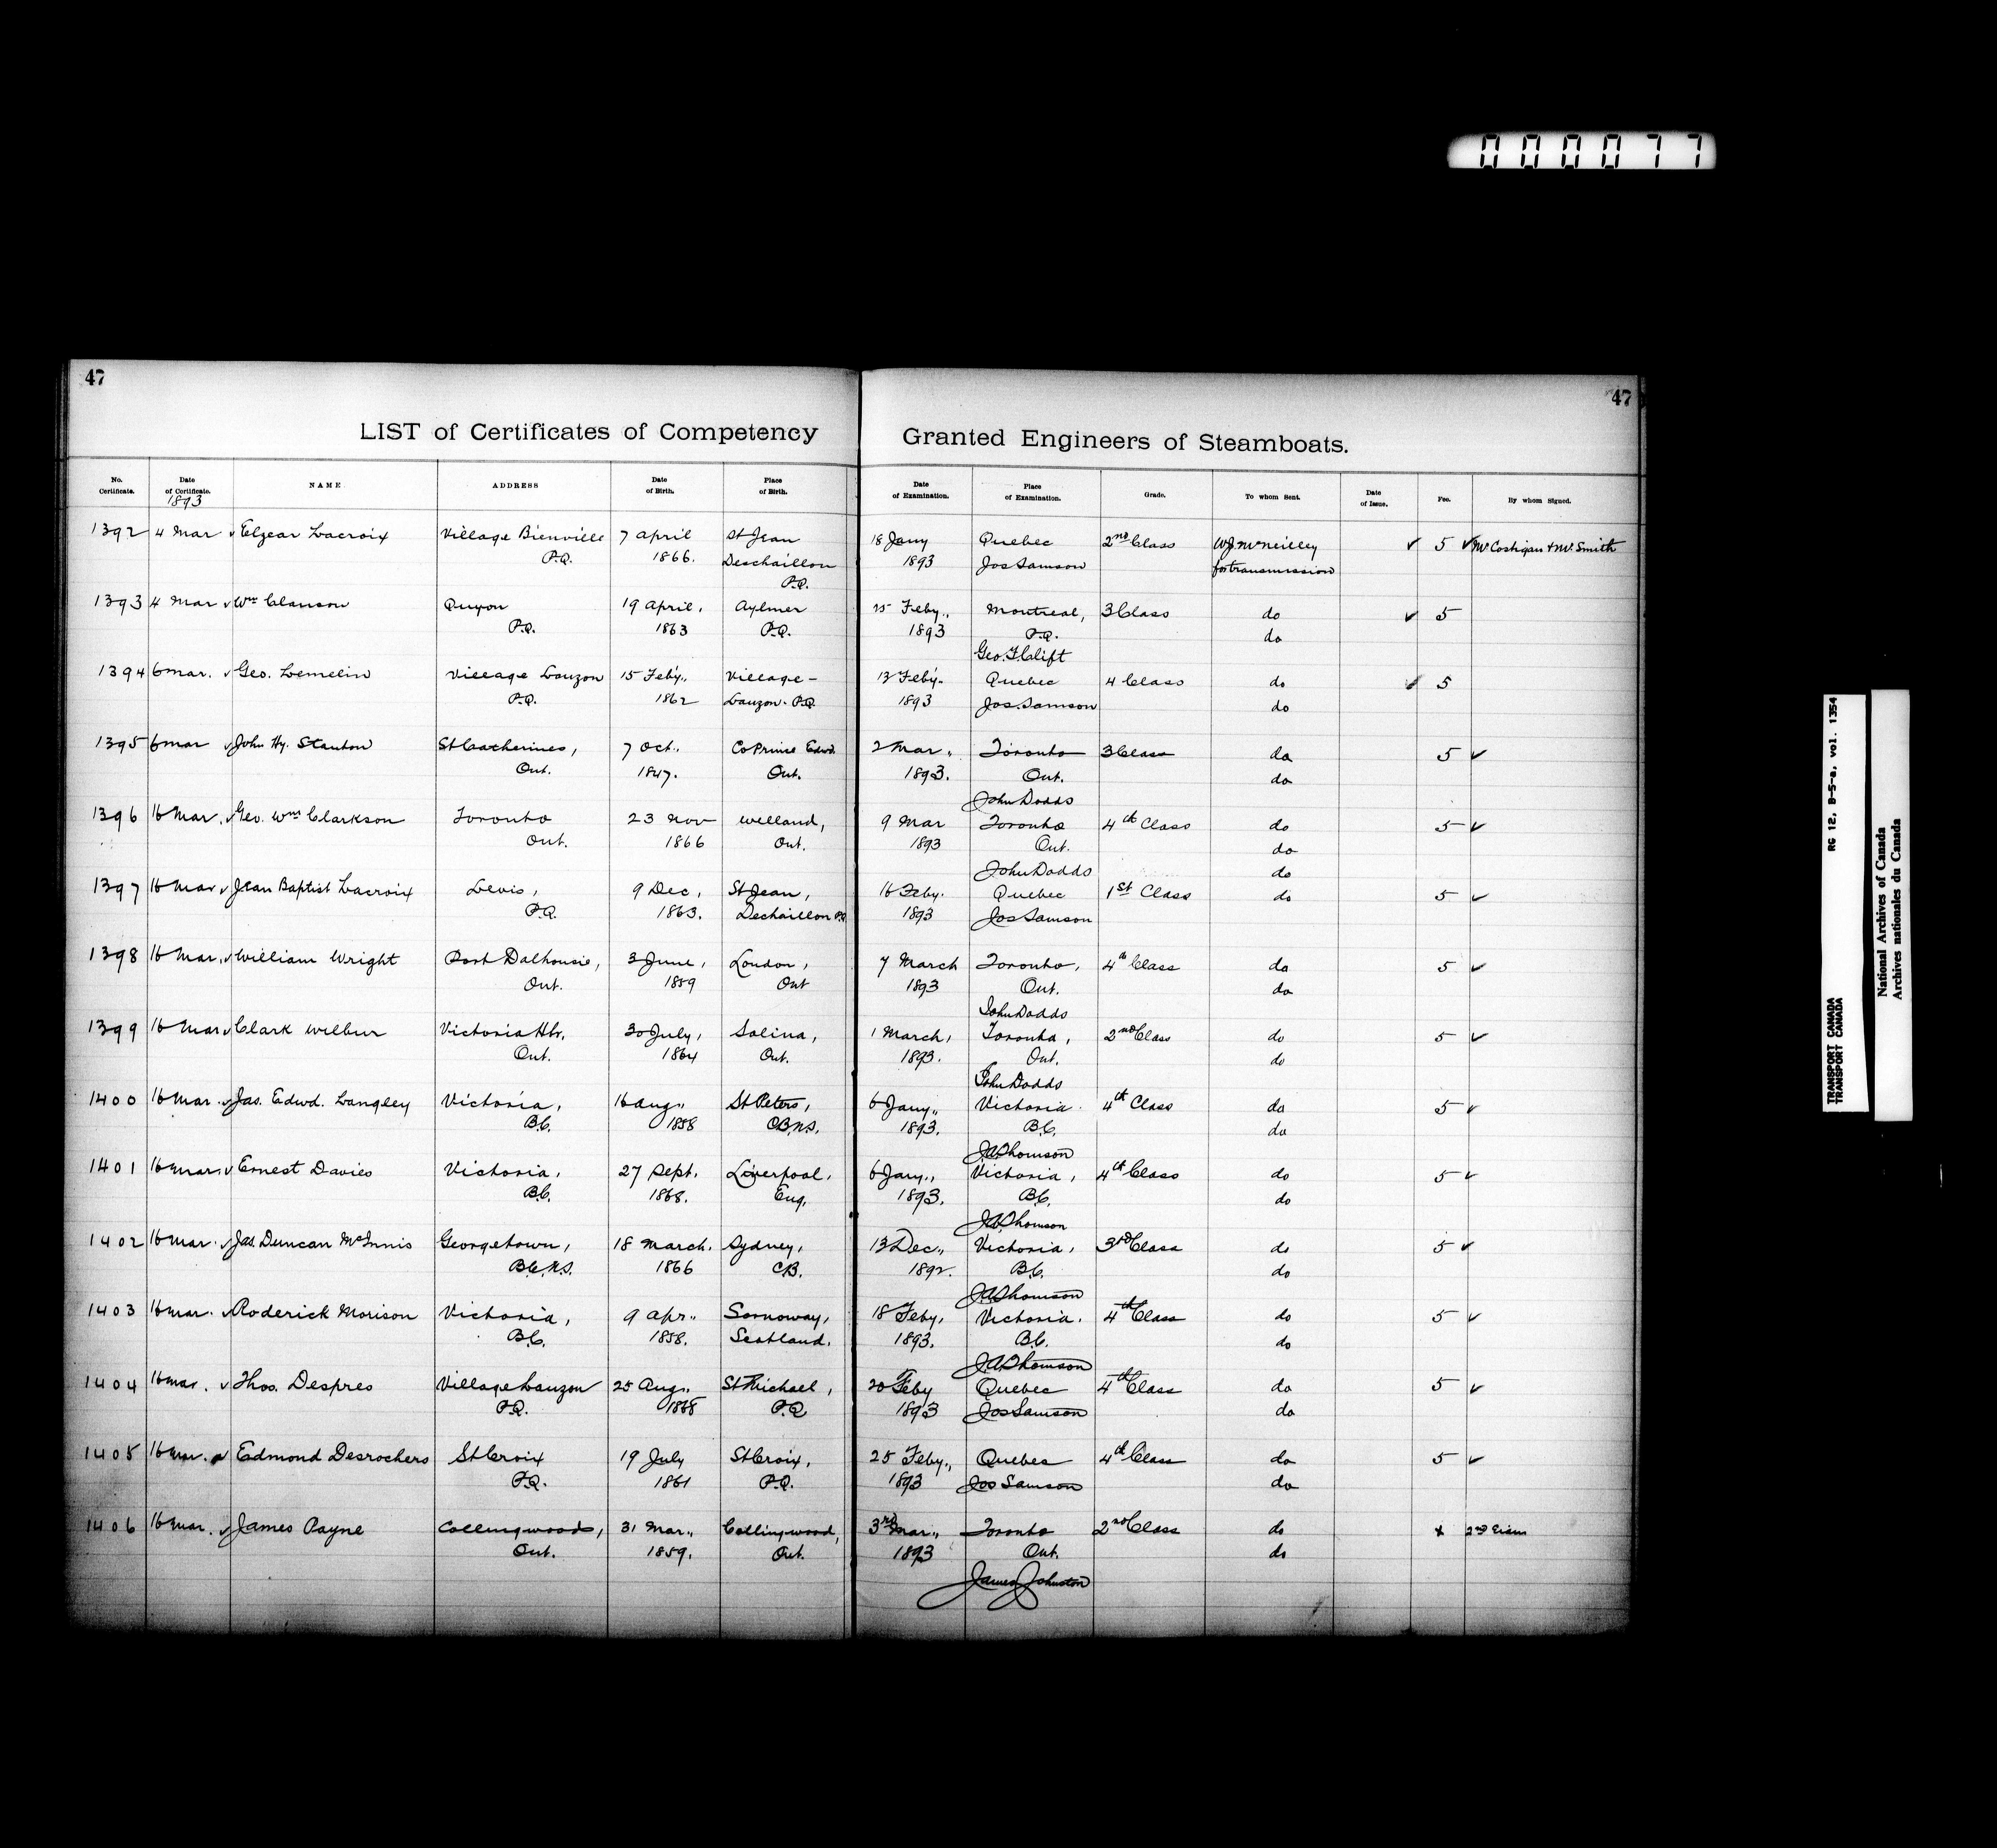 000077
47
47
LIST of Certificates of Competency Granted Engineers of Steamboats.
No. Certificate. Date of Certificate. NAME ADDRESS Date of Birth. Place of Birth. Date of Examination. Place of Examination. Grade. To whom Sent. Date of Issue. Fee. By whom Signed.
1893
1392 4 Mar ✓ Elzear Lacroix Village Bienville 7 April St Jean 18 Jany Quebec 2nd Class W.J. McNeilley ✓ 5 ✓ Mr Costigan + Mr. Smith
P.Q. 1866. Deschaillon 1893 Jos Samson for transmission
P.Q.
1393 4 Mar ✓ Wm Clanson Quyon 19 April, Aylmer 25 Feby., Montreal, 3 Class do ✓ 5
P.Q. 1863 P.Q. 1893 P.Q. do
Geo. F. Clift
1394 6 Mar. ✓ Geo. Lemelin Village Lauzon 15 Feby., Village- 13 Feby. Quebec 4 Class do ✓ 5
P.Q. 1862 Lauzon. P.Q. 1893 Jos. Samson do
1395 6 Mar ✓ John Hy. Stanton St Catherines, 7 Oct., Co Prince Edwd. 2 Mar., Toronto 3 Class do 5 ✓
Ont. 1847. Ont. 1893. Ont. do
John Dodds
1396 16 Mar. ✓ Geo. Wm Clarkson Toronto 23 Nov Welland, 9 Mar Toronto 4th Class do 5 ✓
Ont. 1866 Ont. 1893 Ont. do
John Dodds do
1397 16 Mar ✓ Jean Baptist Lacroix Levis, 9 Dec, St Jean, 16 Feby. Quebec 1st Class do 5 ✓
P.Q. 1863. Dechaillon P.Q. 1893 Jos Samson
1398 16 Mar. ✓ William Wright Port Dalhousie, 3 June, London, 7 March Toronto, 4th Class do 5 ✓
Ont. 1859 Ont 1893 Ont. do
John Dodds
1399 16 Mar ✓ Clark Wilbur Victoria Hbr. 30 July, Solina, 1 March, Toronto, 2nd Class do 5 ✓
Ont. 1864 Ont. 1893. Ont. do
John Dodds
1400 16 Mar. ✓ Jas. Edwd. Langley Victoria, 16 Aug., St Peters, 6 Jany., Victoria. 4th Class do 5 ✓
B.C. 1858 C.B.N.S. 1893. B.C. do
J.A. Thomson
1401 16 Mar. ✓ Ernest Davies Victoria, 27 Sept. Liverpool, 6 Jany., Victoria, 4th Class do 5 ✓
B.C. 1868. Eng. 1893. B.C. do
J.A. Thomson
1402 16 Mar. ✓ Jas. Duncan McInnis Georgetown, 18 March. Sydney, 13 Dec., Victoria, 3rd Class do 5 ✓
B.C. N.S. 1866 C.B. 1892. B.C. do
J.A. Thomson
1403 16 Mar. ✓ Roderick Morison Victoria, 9 Apr., Sornoway, 18 Feby, Victoria. 4th Class do 5 ✓
B.C. 1858. Scotland. 1893. B.C. do
J.A. Thomson
1404 16 Mar. ✓ Thos. Despres Village Lauzon 25 Aug., St Michael, 20 Feby Quebec 4th Class do 5 ✓
P.Q. 1868 P.Q 1893 Jos Samson do
1405 16 Mar. ✓ Edmond Desrochers St Croix 19 July St Croix, 25 Feby., Quebec 4th Class do 5 ✓
P.Q. 1861 P.Q. 1893 Jos Samson do
1406 16 Mar. ✓ James Payne Collingwood, 31 Mar., Collingwood, 3rd Mar., Toronto 2nd Class do x 2nd Exam
Ont. 1859. Ont. 1893 Ont. do
James Johnston
TRANSPORT CANADA RG 12, B-5-a, vol. 1354
TRANSPORT CANADA
National Archives of Canada
Archives nationales du Canada